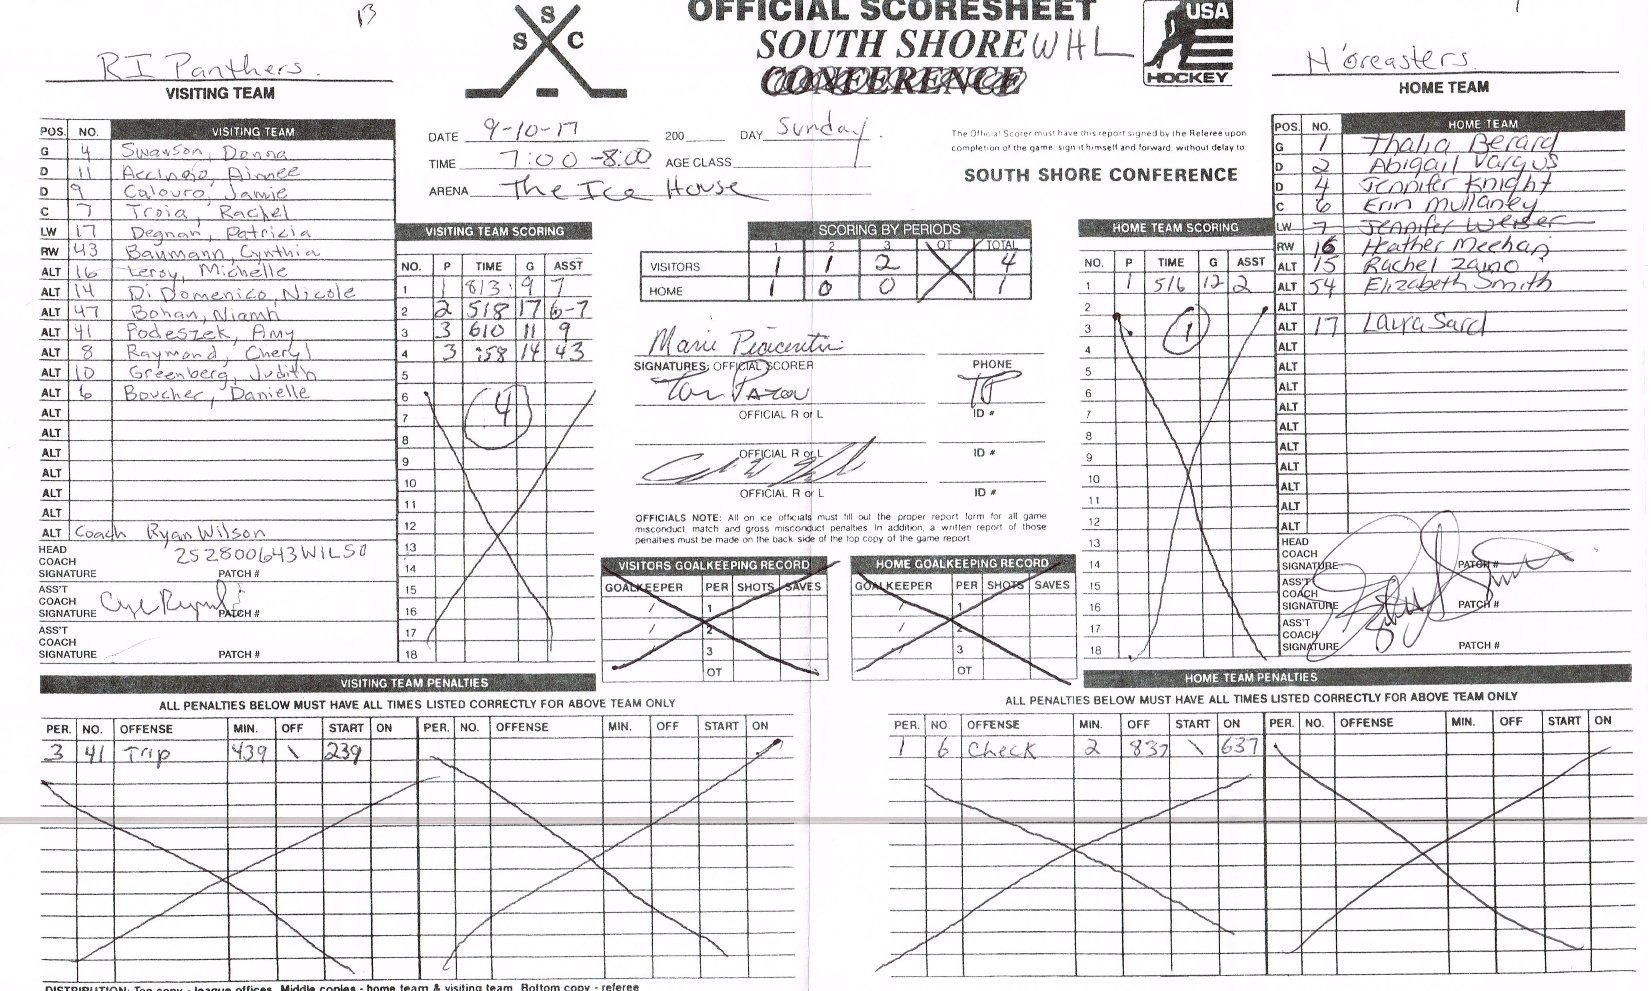 13
OFFICIAL SCORESHEET
SOUTH SHORE WHL
CONFERENCE
S S C
USA HOCKEY
RI Panthers
VISITING TEAM
N'oreasters
HOME TEAM
DATE 9-10-17 200 DAY Sunday
TIME 7:00-8:00 AGE CLASS
ARENA The Ice House
The Official Scorer must have this report signed by the Referee upon
completion of the game, sign it himself and forward, without delay to:
SOUTH SHORE CONFERENCE
POS. NO. VISITING TEAM
G 4 Swanson, Donna
D 11 Aimee
D 9 Calouro, Jamie
C 7 Troia, Rachel
LW 17 Degnan, Patricia
RW 43 Baumann, Cynthia
ALT 16 Leroy, Michelle
ALT 14 DiDomenico, Nicole
ALT 47 Bohan, Niamh
ALT 41 Podeszek, Amy
ALT 8 Raymond, Cheryl
ALT 10 Greenberg, Judith
ALT 6 Boucher, Danielle
ALT
ALT
ALT
ALT
ALT
ALT
ALT Coach Ryan Wilson
HEAD COACH SIGNATURE 252800643WILSO PATCH #
ASS'T COACH SIGNATURE PATCH #
ASS'T COACH SIGNATURE PATCH #
VISITING TEAM SCORING
NO. P TIME G ASST
1 1 813 9 7
2 2 518 17 6-7
3 3 610 11 9
4 3 :58 14 43
5
6
7 4
8
9
10
11
12
13
14
15
16
17
18
SCORING BY PERIODS
1 2 3 OT TOTAL
VISITORS 1 1 2 4
HOME 1 0 0 1
SIGNATURES: OFFICIAL SCORER PHONE
OFFICIAL R or L ID #
OFFICIAL R or L ID #
OFFICIAL R or L ID #
OFFICIALS NOTE: All on ice officials must fill out the proper report form for all game
misconduct, match and gross misconduct penalties. In addition, a written report of those
penalties must be made on the back side of the top copy of the game report.
VISITORS GOALKEEPING RECORD
GOALKEEPER PER SHOTS SAVES
1
2
3
OT
HOME GOALKEEPING RECORD
GOALKEEPER PER SHOTS SAVES
1
2
3
OT
HOME TEAM SCORING
NO. P TIME G ASST
1 1 516 12 2
2
3 1
4
5
6
7
8
9
10
11
12
13
14
15
16
17
18
POS. NO. HOME TEAM
G 1 Thalia Berard
D 2 Abigail Vargus
D 4 Jennifer Knight
C 6 Erin Mullaney
LW 7 Jennifer Weiser
RW 16 Heather Meehan
ALT 15 Rachel Zaino
ALT 54 Elizabeth Smith
ALT
ALT 17 Laura Sard
ALT
ALT
ALT
ALT
ALT
ALT
ALT
ALT
ALT
ALT
HEAD COACH SIGNATURE PATCH #
ASS'T COACH SIGNATURE PATCH #
ASS'T COACH SIGNATURE PATCH #
VISITING TEAM PENALTIES
ALL PENALTIES BELOW MUST HAVE ALL TIMES LISTED CORRECTLY FOR ABOVE TEAM ONLY
PER. NO. OFFENSE MIN. OFF START ON PER. NO. OFFENSE MIN. OFF START ON
3 41 Trip 439 \ 239
HOME TEAM PENALTIES
ALL PENALTIES BELOW MUST HAVE ALL TIMES LISTED CORRECTLY FOR ABOVE TEAM ONLY
PER. NO. OFFENSE MIN. OFF START ON PER. NO. OFFENSE MIN. OFF START ON
1 6 Check 2 837 \ 637
DISTRIBUTION: Top copy - league offices, Middle copies - home team & visiting team, Bottom copy - referee